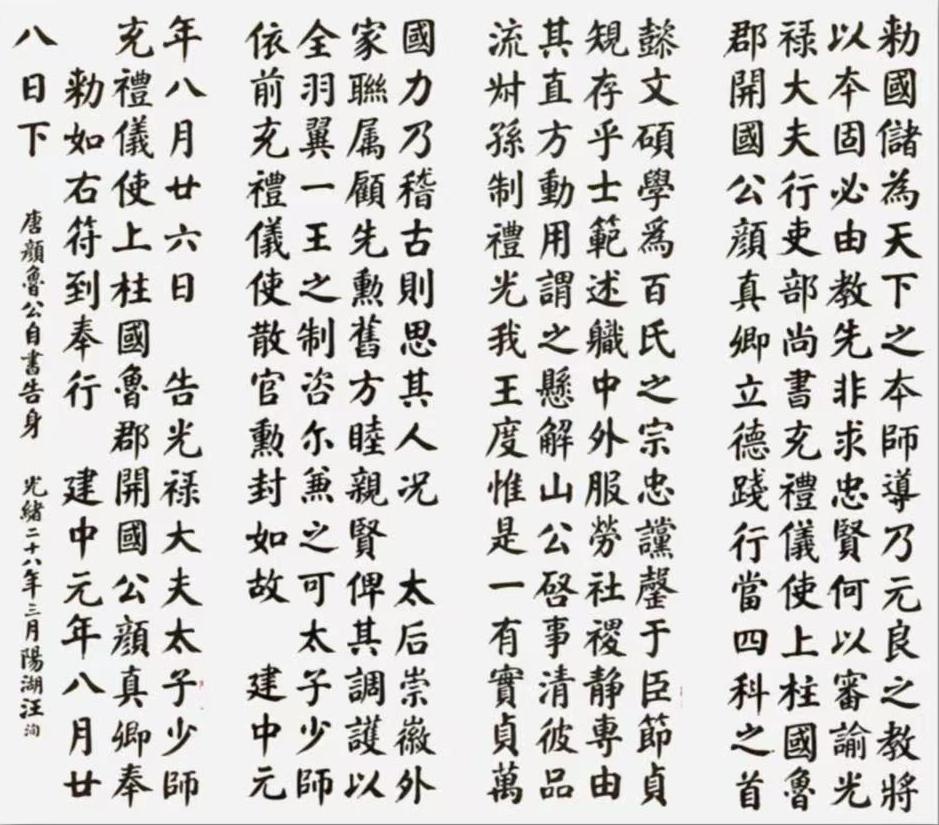 勅國儲為天下之本師導乃元良之教將
以本固必由教先非求忠賢何以審諭光
祿大夫行吏部尚書充禮儀使上柱國魯
郡開國公顏真卿立德踐行當四科之首
懿文碩學爲百氏之宗忠讜罄于臣節貞
規存乎士範述職中外服勞社稷静專由
其直方動用謂之懸解山公啓事清彼品
流叔孫制禮光我王度惟是一有實貞萬
國力乃稽古則思其人况 太后崇徽外
家聯属顧先勳舊方睦親賢俾其調護以
全羽翼一王之制咨尓兼之可太子少師
依前充禮儀使散官勳封如故 建中元
年八月廿六日 告光祿大夫太子少師
充禮儀使上柱國魯郡開國公顏真卿奉
勅如右符到奉行 建中元年八月廿
八日下 唐顏魯公自書告身 光緒二十八年三月陽湖汪洵